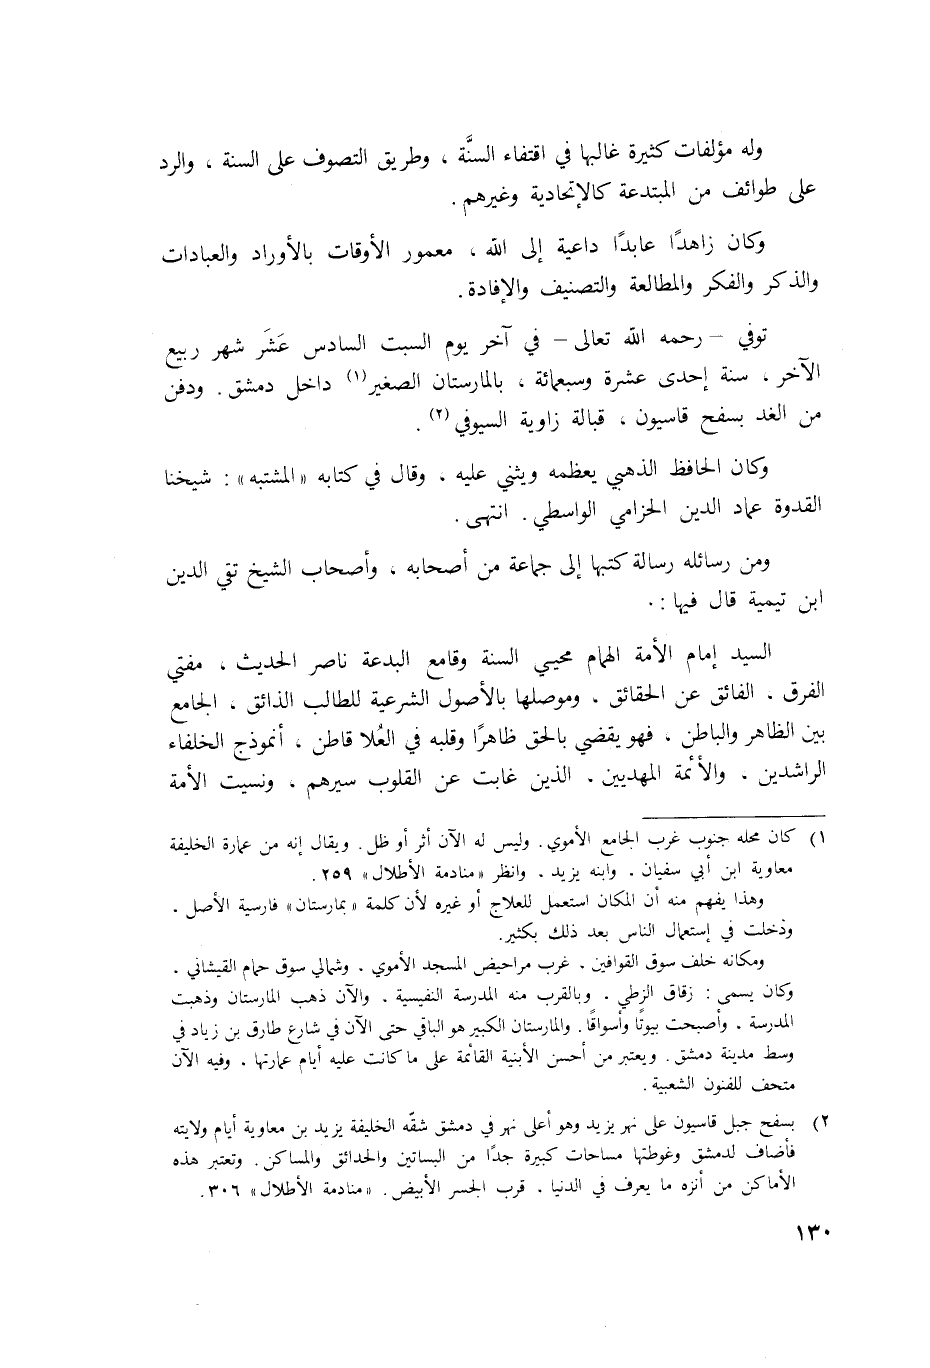 وله مؤلفات كثيرة غالبها في اقتفاء السنَّة ، وطريق التصوف على السنة ، والرد
على طوائف من المبتدعة كالإتحادية وغيرهم .
وكان زاهدًا عابدًا داعية إلى الله ، معمور الأوقات بالأوراد والعبادات
والذكر والفكر والمطالعة والتصنيف والإفادة .
توفي – رحمه الله تعالى – في آخر يوم السبت السادس عَشَر شهر ربيع
الآخر ، سنة إحدى عشرة وسبعمائة ، بالمارستان الصغير (١) داخل دمشق . ودفن
من الغد بسفح قاسيون ، قبالة زاوية السيوفي (٢) .
وكان الحافظ الذهبي يعظمه ويثني عليه . وقال في كتابه « المشتبه » : شيخنا
القدوة عماد الدين الحزامي الواسطي . انتهى .
ومن رسائله رسالة كتبها إلى جماعة من أصحابه ، وأصحاب الشيخ تقي الدين
ابن تيمية قال فيها :
السيد إمام الأمة الهمام محيي السنة وقامع البدعة ناصر الحديث ، مفتي
الفرق ، الفائق عن الحقائق . وموصلها بالأصول الشرعية للطالب الذائق ، الجامع
بين الظاهر والباطن ، فهو يقضي بالحق ظاهرًا وقلبه في العُلا قاطن ، أنموذج الخلفاء
الراشدين ، والأئمة المهديين . الذين غابت عن القلوب سيرهم ، ونسيت الأمة
١) كان محله جنوب غرب الجامع الأموي . وليس له الآن أثر أو ظل . ويقال إنه من عمارة الخليفة
معاوية ابن أبي سفيان . وابنه يزيد . وانظر « منادمة الأطلال » ٢٥٩ .
وهذا يفهم منه أن المكان استعمل للعلاج أو غيره لأن كلمة « بمارستان » فارسية الأصل .
ودخلت في إستعمال الناس بعد ذلك بكثير .
ومكانه خلف سوق القوافين . غرب مراحيض المسجد الأموي . وشمالي سوق حمام القيشاني .
وكان يسمى : زقاق الزطي . وبالقرب منه المدرسة النفيسية . والآن ذهب المارستان وذهبت
المدرسة . وأصبحت بيوتًا وأسواقًا . والمارستان الكبير هو الباقي حتى الآن في شارع طارق بن زياد في
وسط مدينة دمشق . ويعتبر من أحسن الأبنية القائمة على ما كانت عليه أيام عمارتها . وفيه الآن
متحف للفنون الشعبية .
٢) بسفح جبل قاسيون على نهر يزيد وهو أعلى نهر في دمشق شقّه الخليفة يزيد بن معاوية أيام ولايته
فأضاف لدمشق وغوطتها مساحات كبيرة جدًا من البساتين والحدائق والمساكن . وتعتبر هذه
الأماكن من أنزه ما يعرف في الدنيا . قرب الجسر الأبيض . « منادمة الأطلال » ٣٠٦ .
١٣٠